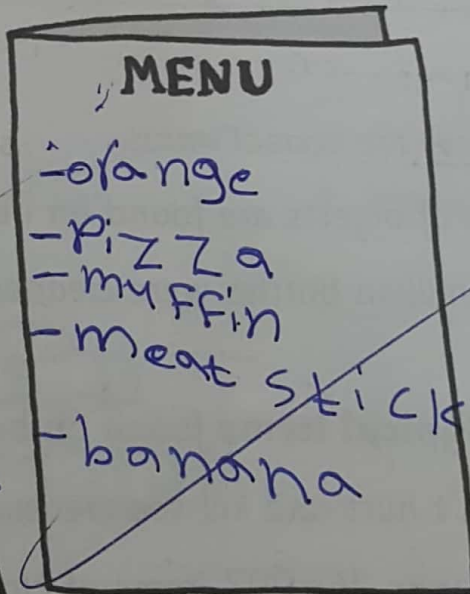 MENU
-orange
-Pizza
-muffin
-meat stick
-banana